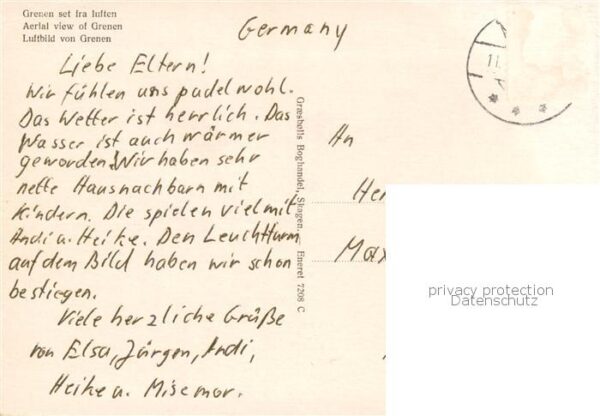 Grenen set fra luften
Aerial view of Grenen
Luftbild von Grenen
Germany
Liebe Eltern!
Wir fühlen uns pudelwohl.
Das Wetter ist herrlich. Das
Wasser ist auch wärmer
geworden! Wir haben sehr
nette Hausnachbarn mit
Kindern. Die spielen viel mit
Andi u. Heike. Den Leuchtturm
auf dem Bild haben wir schon
bestiegen.
Viele herzliche Grüße
von Elsa, Jürgen, Andi,
Heike u.
Græsholts Boghandel, Skagen. Eneret 7208 C
11.
An
Her
Max
privacy protection
Datenschutz